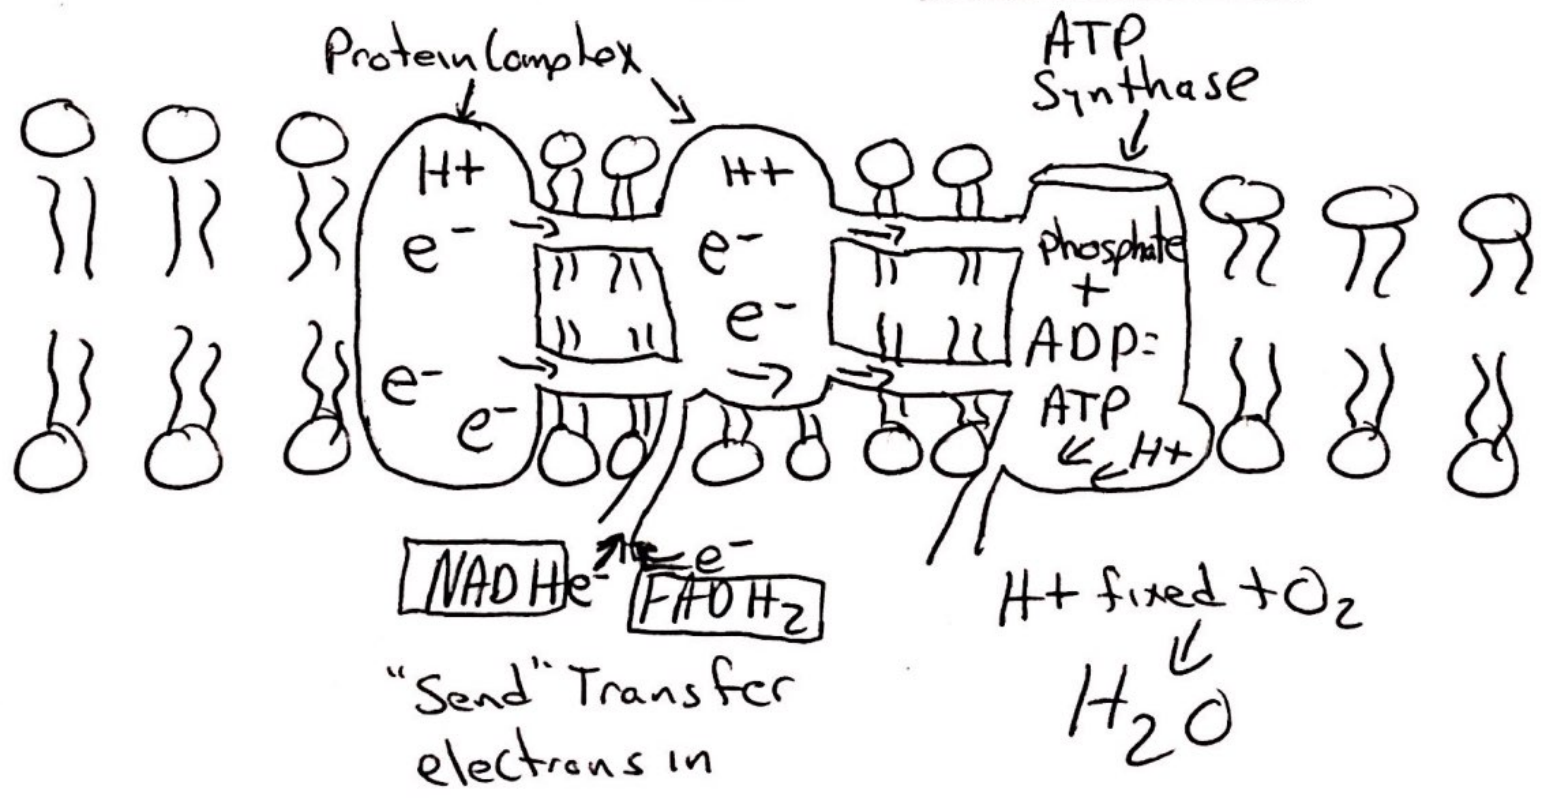 Protein Complex
ATP
Synthase
H+
e-
e-
e-
H+
e-
e-
phosphate
+
ADP=
ATP
H+
NADH
e-
e-
FADH2
"Send" Transfer
electrons in
H+ fixed + O2
H2O